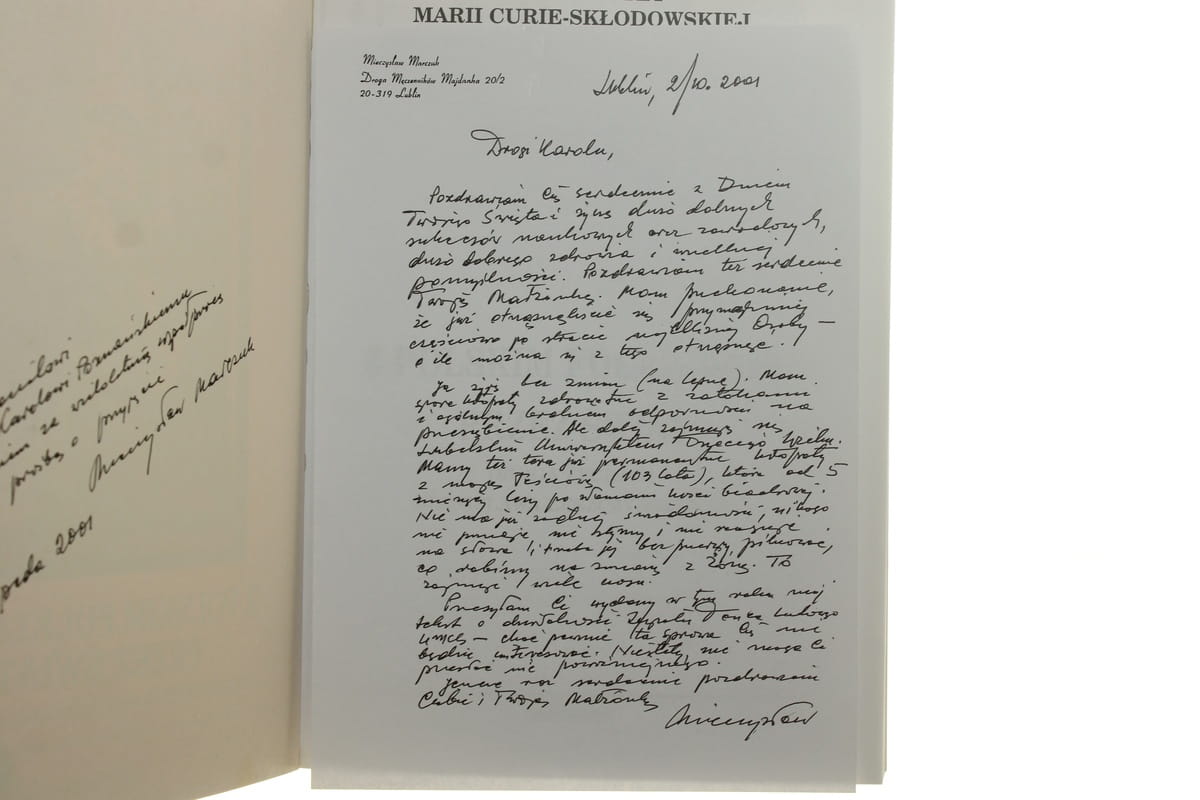 MARII CURIE-SKŁODOWSKIEJ
Mieczysław Marczuk
Droga Męczenników Majdanka 20/2
20-319 Lublin
Lublin, 2/10. 2001
Drogi Karolu,
Pozdrawiam Cię serdecznie z Dniem
Twojego Święta i życzę dużo dobrych
sukcesów naukowych oraz zawodowych,
dużo dobrego zdrowia i wszelkiej
pomyślności. Pozdrawiam też serdecznie
Twoją Małżonkę. Mam przekonanie,
że już otrząsnęliście się przynajmniej
częściowo po stracie najbliższej Osoby –
o ile można się z tego otrząsnąć.
Ja żyję bez zmian (na lepsze). Mam
spore kłopoty zdrowotne z zatokami
i ogólnym brakiem odporności na
przeziębienie. Ale dalej zajmuję się
Lubelskim Uniwersytetem Trzeciego Wieku.
Mamy też teraz już permanentne kłopoty
z moją Teściową (103 lata), która od 5
miesięcy leży po złamaniu kości biodrowej.
Nie ma już żadnej świadomości, nikogo
nie poznaje, nie słyszy i nie reaguje
na słowa i trzeba jej bez przerwy pilnować,
co robimy na zmianę z Żoną. To
zajmuje wiele czasu.
Przesyłam Ci wydany w tym roku mój
tekst o działalności Zespołu Tańca Ludowego
UMCS – choć pewnie ta sprawa Cię nie
będzie interesować. Niestety, nie mogę Ci
przesłać nic poważniejszego.
Jeszcze raz serdecznie pozdrawiam
Ciebie i Twoją Małżonkę
Mieczysław
Karolowi Poznańskiemu
za wieloletnią współpracę
prośbą o przyjęcie
Mieczysław Marczuk
2001